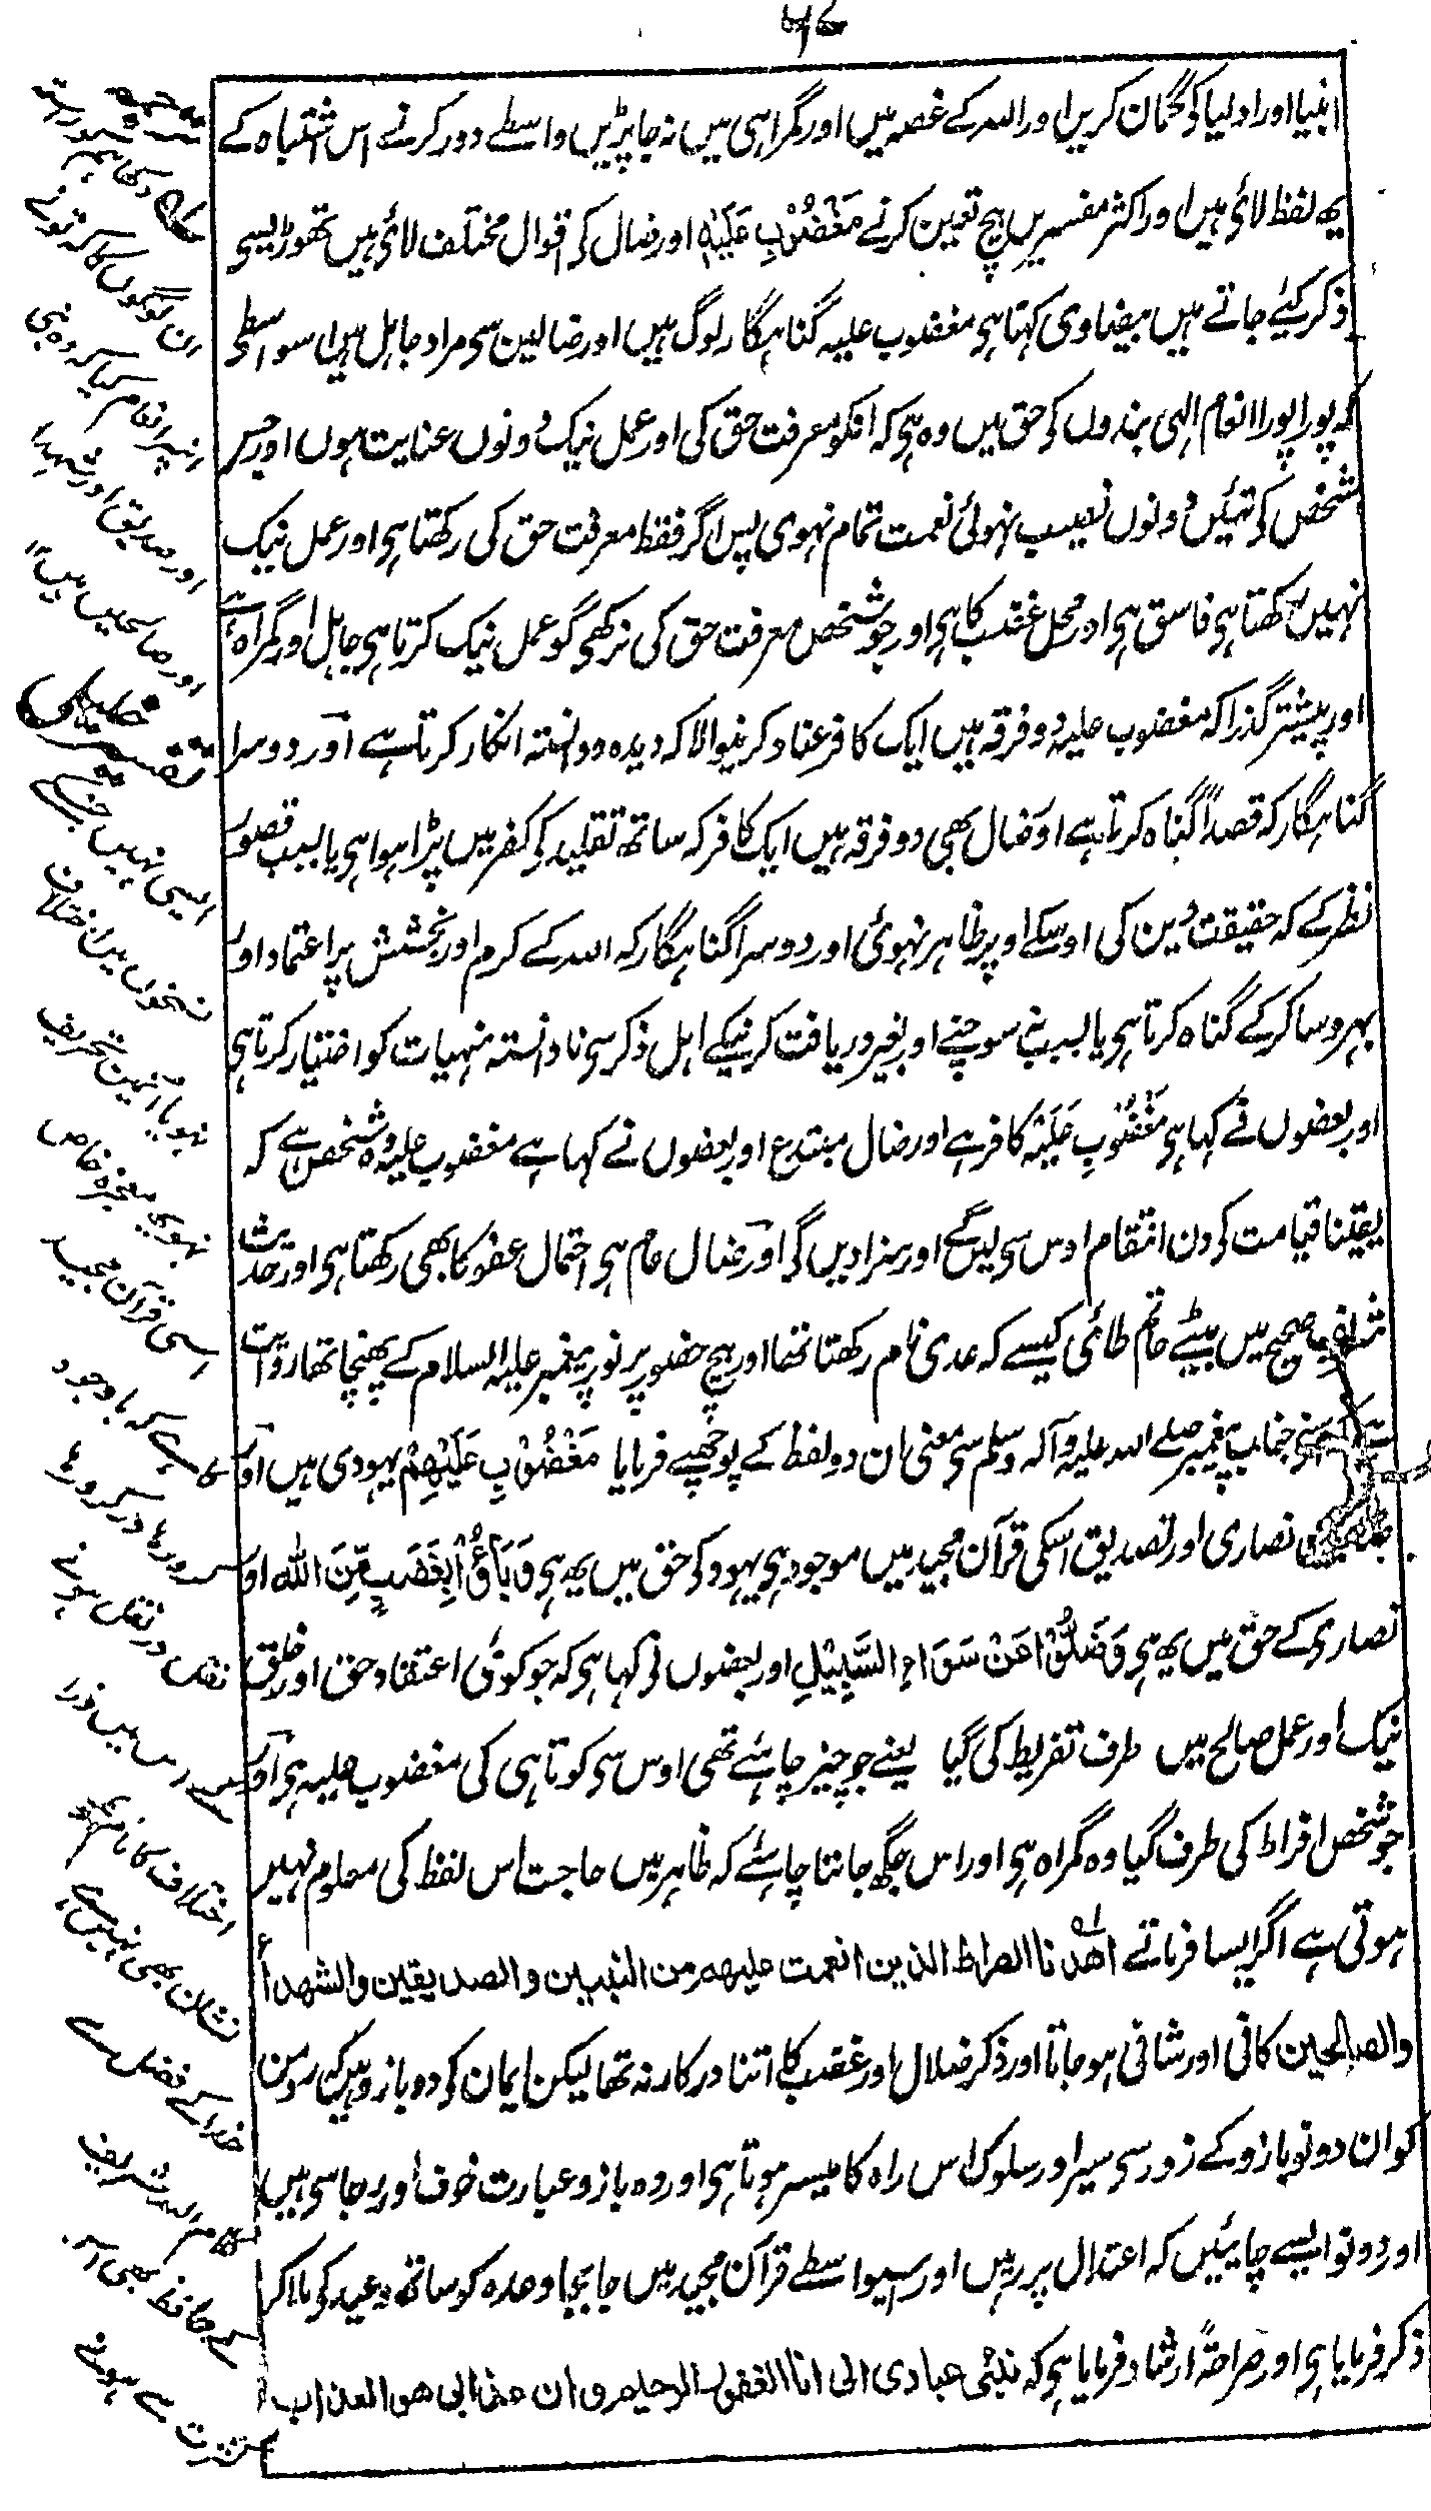 ۶۷
انبیا اور اولیا کی گمان کریں اور اللہ کے غصہ میں اور گمراہی میں نہ جا پڑیں واسطے دور کرنے اس اشتباہ کے
یھ لفظ لائی ہیں اور اکثر مفسریں بیچ تعین کرنے مَغْضُوْبِ عَلَيْهِ اور ضال کی اقوال مختلف لائی ہیں تھوڑیسی
ذکر کیئے جاتے ہیں بیضاوی کہتا ہی مغضوب علیہ گناہگار لوگ ہیں اور ضالین سی مراد جاہل ہیں اسواسطی
کہ پورا پورا انعام الہی بندوں کی حق میں وہ ہی کہ انکو معرفت حق کی اور عمل نیک دونوں عنایت ہوں اور جس
شخص کی تئیں دونوں نصیب نہوئی نعمت تمام نہوی پس اگر فقط معرفت حق کی رکھتا ہی اور عمل نیک
نہیں رکھتا ہی فاسق ہی اور محل غضب کا ہی اور جو شخص معرفت حق کی نرکھی گو عمل نیک کرتا ہی جاہل اور گمراہ ہے
اور پیشتر گذرا کہ مغضوب علیہ دو فرقہ ہیں ایک کافر عناد کرنیوالا کہ دیدہ و دانستہ انکار کرتا ہے اور دوسرا
گناہگار کہ قصداً گناہ کرتا ہے اور ضال بھی دو فرقہ ہیں ایک کافر کہ ساتھ تقلید کی کفر میں پڑا ہوا ہی یا بسبب قصور
نظر کے کہ حقیقت دین کی اوسکے اوپر ظاہر نہوئی اور دوسرا گناہگار کہ اللہ کے کرم اور بخشش پر اعتماد اور
بہروسا کر کے گناہ کرتا ہی یا بسبب نہ سوچنے اور بغیر دریافت کرنیکے اہل ذکر سی نادانستہ منہیات کو اختیار کرتا ہی
اور بعضوں نے کہا ہی مَغْضُوْبِ عَلَيْهِ کافر ہے اور ضال مبتدع اور بعضوں نے کہا ہے مغضوب علیہ وہ شخص ہے کہ
یقینا قیامت کی دن انتقام اوس سی لیں گے اور سزا دیں گی اور ضال عام ہی احتمال عفو کا بھی رکھتا ہی اور حدیث
شریف صحیح میں بیٹے حاتم طائی کیسے کہ عدی نام رکھتا تھا اور بیچ حضور پر نور پیغمبر علیہ السلام کے پھنچا تھا روایت
ہے کہ اسنے جناب پیغمبر صلے اللہ علیہ وآلہ وسلم سی معنی ان دو لفظ کے پوچھے فرمایا مَغْضُوْبِ عَلَيْهِمْ یہودی ہیں اور
نصاری اور تصدیق اسکی قرآن مجید میں موجود ہی یہود کی حق میں یھ ہی وَبَاؤُا بِغَضَبٍ مِّنَ الله اور
نصاری کے حق میں یھ ہی وَضَلُّوْا عَنْ سَوَاءِ السَّبِيْلِ اور بعضوں نی کہا ہی کہ جو کوئی اعتقاد حق اور خلق
نیک اور عمل صالح میں طرف تفریط کی گیا یعنے جو چیز چاہئے تھی اوس سی کوتاہی کی مغضوب علیہ ہی اور
جو شخص افراط کی طرف گیا وہ گمراہ ہی اور اس جگھ جاننا چاہئے کہ ظاہر میں حاجت اس لفظ کی معلوم نہیں
ہوتی ہے اگر ایسا فرماتے اهدنا الصراط الذين انعمت عليهم من النبيين والصديقين والشهدأ
والصالحین کافی اور شافی ہو جاتا اور ذکر ضلال اور غضب کا اتنا درکار نہ تھا لیکن ایمان کی دو بازو ہیں کہ مومن
کو ان دونو بازو کے زور سی سیر اور سلوک اس راہ کا میسر ہوتا ہی اور وہ بازو عبارت خوف اور رجا سی ہیں
اور دونو ایسے چاہئیں کہ اعتدال پر رہیں اور اسیواسطے قرآن مجید میں جابجا وعدہ کو ساتھ وعید کی ملا کر
ذکر فرمایا ہی اور صراحۃً ارشاد فرمایا ہی کہ نبئی عبادی انی انا الغفور الرحیم وان عذابی هو العذاب
ترجمہ
ان لوگوں کا کہ تونے
انپر انعام کیا کہ وہ نبی
اور صدیق اور شہید
اور صالحین ہیں
ایسی نہیں جنکے
نسخوں میں اختلاف
نہو یا آئمیں تحریف
نہوی معجزہ خاص
اسی قرآن مجید
کا ہے کہ باوجود
کرورہا
نقل در نقل ہونے
کے اس میں ذرا
اختلاف کا نام و
نشان بھی نہیں ہے
خدا کے فضل سے
حرمین الشریفین
کے حافظ بھی
کثرت سے ہونے